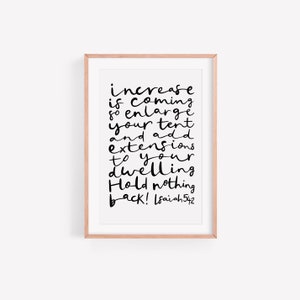 increase
is coming
so enlarge
your tent
and add
extensions
to your
dwelling
Hold nothing
back! Isaiah 54:2